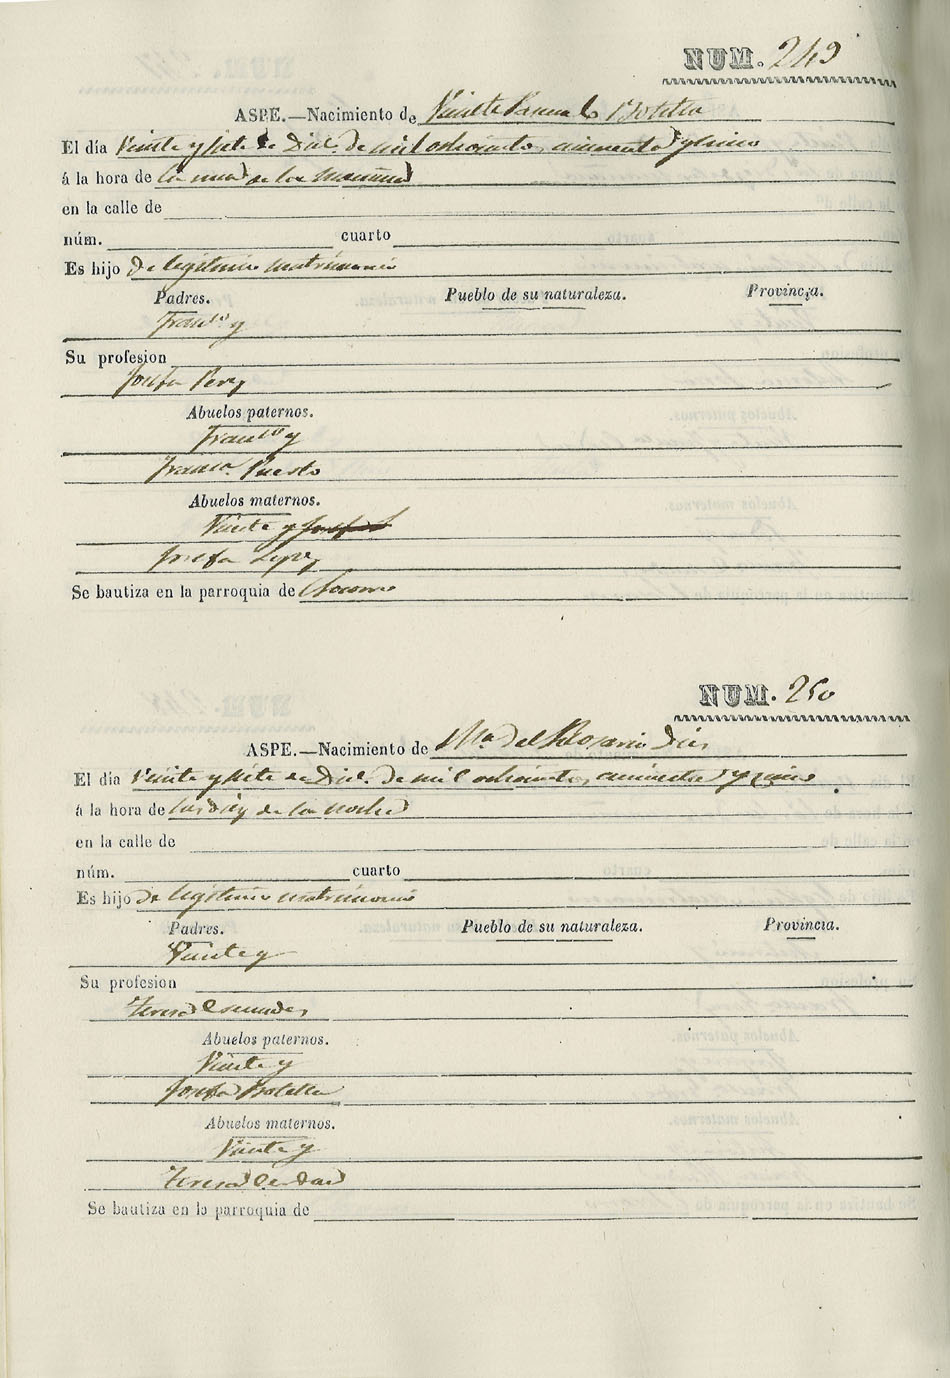 NUM. 249
ASPE.—Nacimiento de Vicente Pascual Botella
El día Veinte y siete de Dic.e de mil ochocientos cincuenta y cinco
á la hora de la una de la mañana
en la calle de
núm. cuarto
Es hijo de legitimo matrimonio
Padres. Pueblo de su naturaleza. Provincia.
Fran.co y
Su profesion
Josefa Perez
Abuelos paternos.
Fran.co y
Franca. Puesto
Abuelos maternos.
Vicente y
Josefa Lopez
Se bautiza en la parroquia de Socorro
NUM. 250
ASPE.—Nacimiento de Ma. del Rosario Diez
El día Veinte y siete de Dic.e de mil ochocientos cincuenta y cinco
á la hora de las diez de la noche
en la calle de
núm. cuarto
Es hijo de legitimo matrimonio
Padres. Pueblo de su naturaleza. Provincia.
Vicente y
Su profesion
Teresa
Abuelos paternos.
Vicente y
Josefa Botella
Abuelos maternos.
Vicente y
Teresa
Se bautiza en la parroquia de